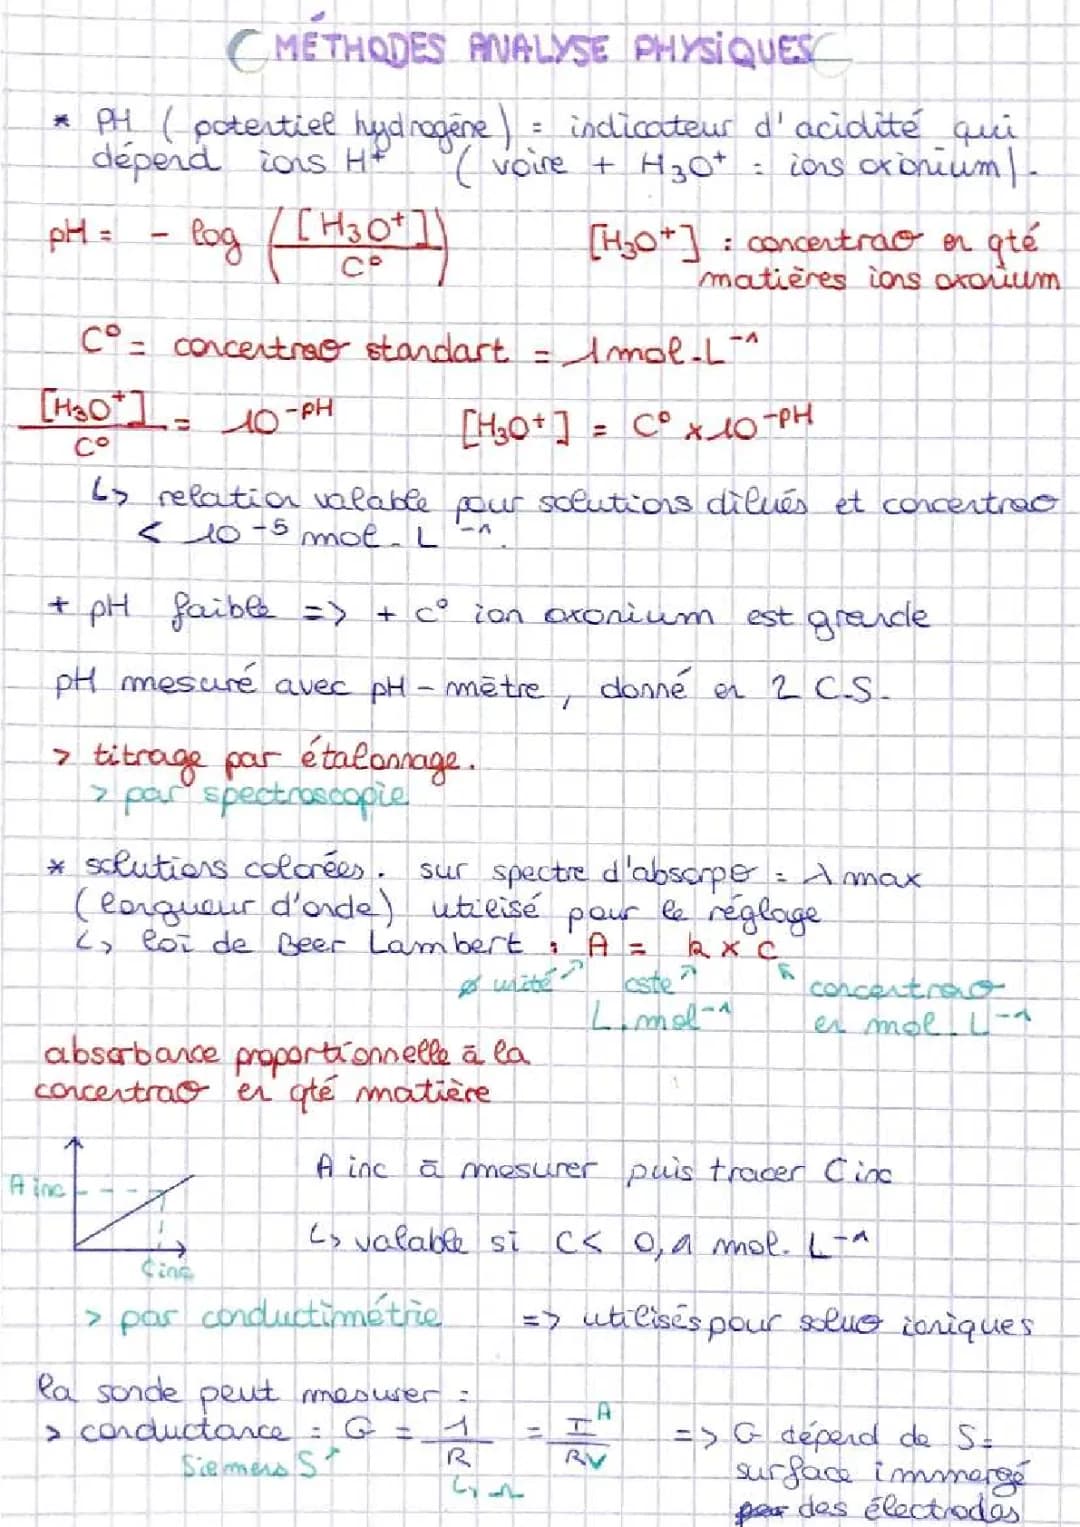 MÉTHODES ANALYSE PHYSIQUES
* PH ( potentiel hydrogène ) = indicateur d'acidité qui
dépend ions H+ ( voire + H3O+ = ions oxonium ) .
pH = - log ( [H3O+] / C° ) [H3O+] : concentrao en qté
matières ions oxonium
C° = concentrao standart = 1 mol.L-1
[H3O+] / C° = 10-PH [H3O+] = C° x 10-PH
↳ relation valable pour solutions dilués et concentrao
< 10-5 mol.L-1.
+ pH faible => + c° ion oxonium est grande
pH mesuré avec pH-mètre, donné en 2 C.S.
> titrage par étalonnage.
> par spectroscopie
* solutions colorées. sur spectre d'absorpo = λ max
( longueur d'onde) utilisé pour le réglage
↳ loi de Beer Lambert : A = k x C
ø unité cste concentrao
L.mol-1 en mol.L-1
absorbance proportionnelle à la
concentrao en qté matière
A inc à mesurer puis tracer C inc
A inc
↳ valable si C < 0,1 mol.L-1
C inc
> par conductimétrie => utilisés pour soluo ioniques
la sonde peut mesurer :
> conductance : G = 1 / R = I A / RV => G dépend de S =
Siemens S ↳ Ω surface immmergé
des électrodes